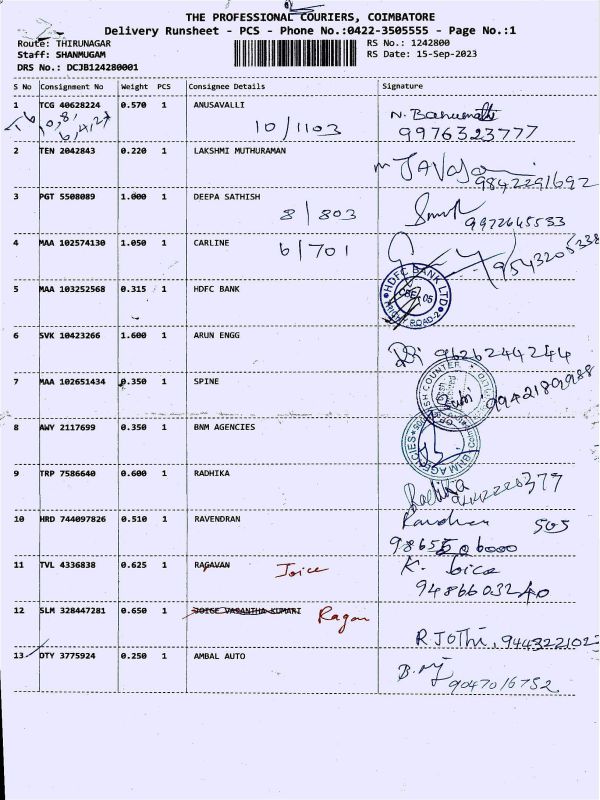 THE PROFESSIONAL COURIERS, COIMBATORE
Delivery Runsheet - PCS - Phone No.:0422-3505555 - Page No.:1
Route: THIRUNAGAR RS No.: 1242800
Staff: SHANMUGAM RS Date: 15-Sep-2023
DRS No.: DCJB124280001
S No Consignment No Weight PCS Consignee Details Signature
1 TCG 40628224 0.570 1 ANUSAVALLI
10/1103
9976323777
2 TEN 2042843 0.220 1 LAKSHMI MUTHURAMAN
9842291692
3 PGT 5508089 1.000 1 DEEPA SATHISH
8/803 9972645533
4 MAA 102574130 1.050 1 CARLINE
6/701 9543205338
5 MAA 103252568 0.315 1 HDFC BANK
HDFC BANK LTD
6 SVK 10423266 1.600 1 ARUN ENGG
9626244244
7 MAA 102651434 0.350 1 SPINE
9942189988
8 AWY 2117699 0.350 1 BNM AGENCIES
BNM AGENCIES
9 TRP 7586640 0.600 1 RADHIKA
Radhika
10 HRD 744097826 0.510 1 RAVENDRAN
505
11 TVL 4336838 0.625 1 RAGAVAN Joice K. Joice
9486603240
12 SLM 328447281 0.650 1 JOICE VASANTHA KUMARI Ragav
R JOTHI, 944322102
13 DTY 3775924 0.250 1 AMBAL AUTO
9047016752